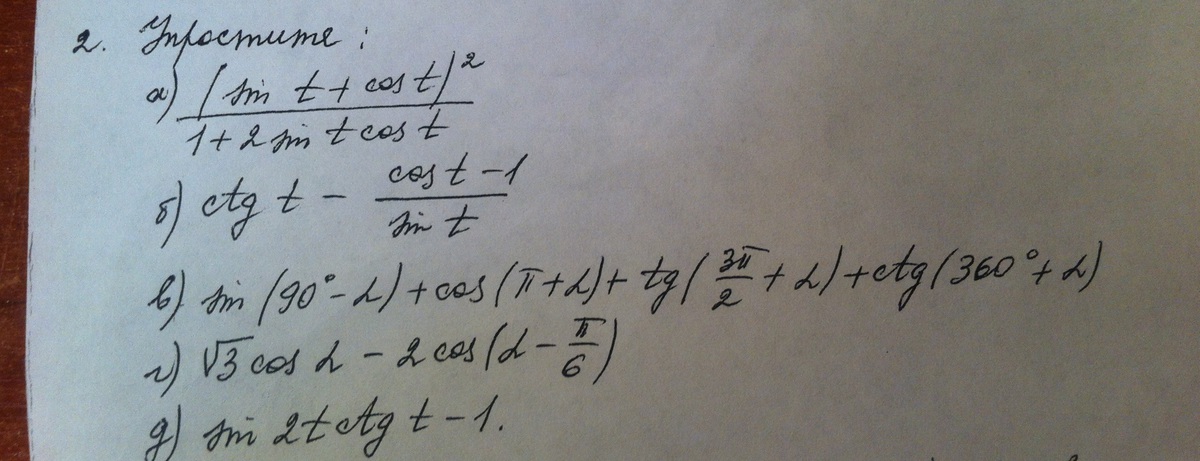 2. Упростите:
а) (sin t + cos t)² / 1 + 2 sin t cos t
б) ctg t − cos t − 1 / sin t
в) sin (90° − α) + cos (π + α) + tg (3π/2 + α) + ctg (360° + α)
г) √3 cos α − 2 cos (α − π/6)
д) sin 2t ctg t − 1.